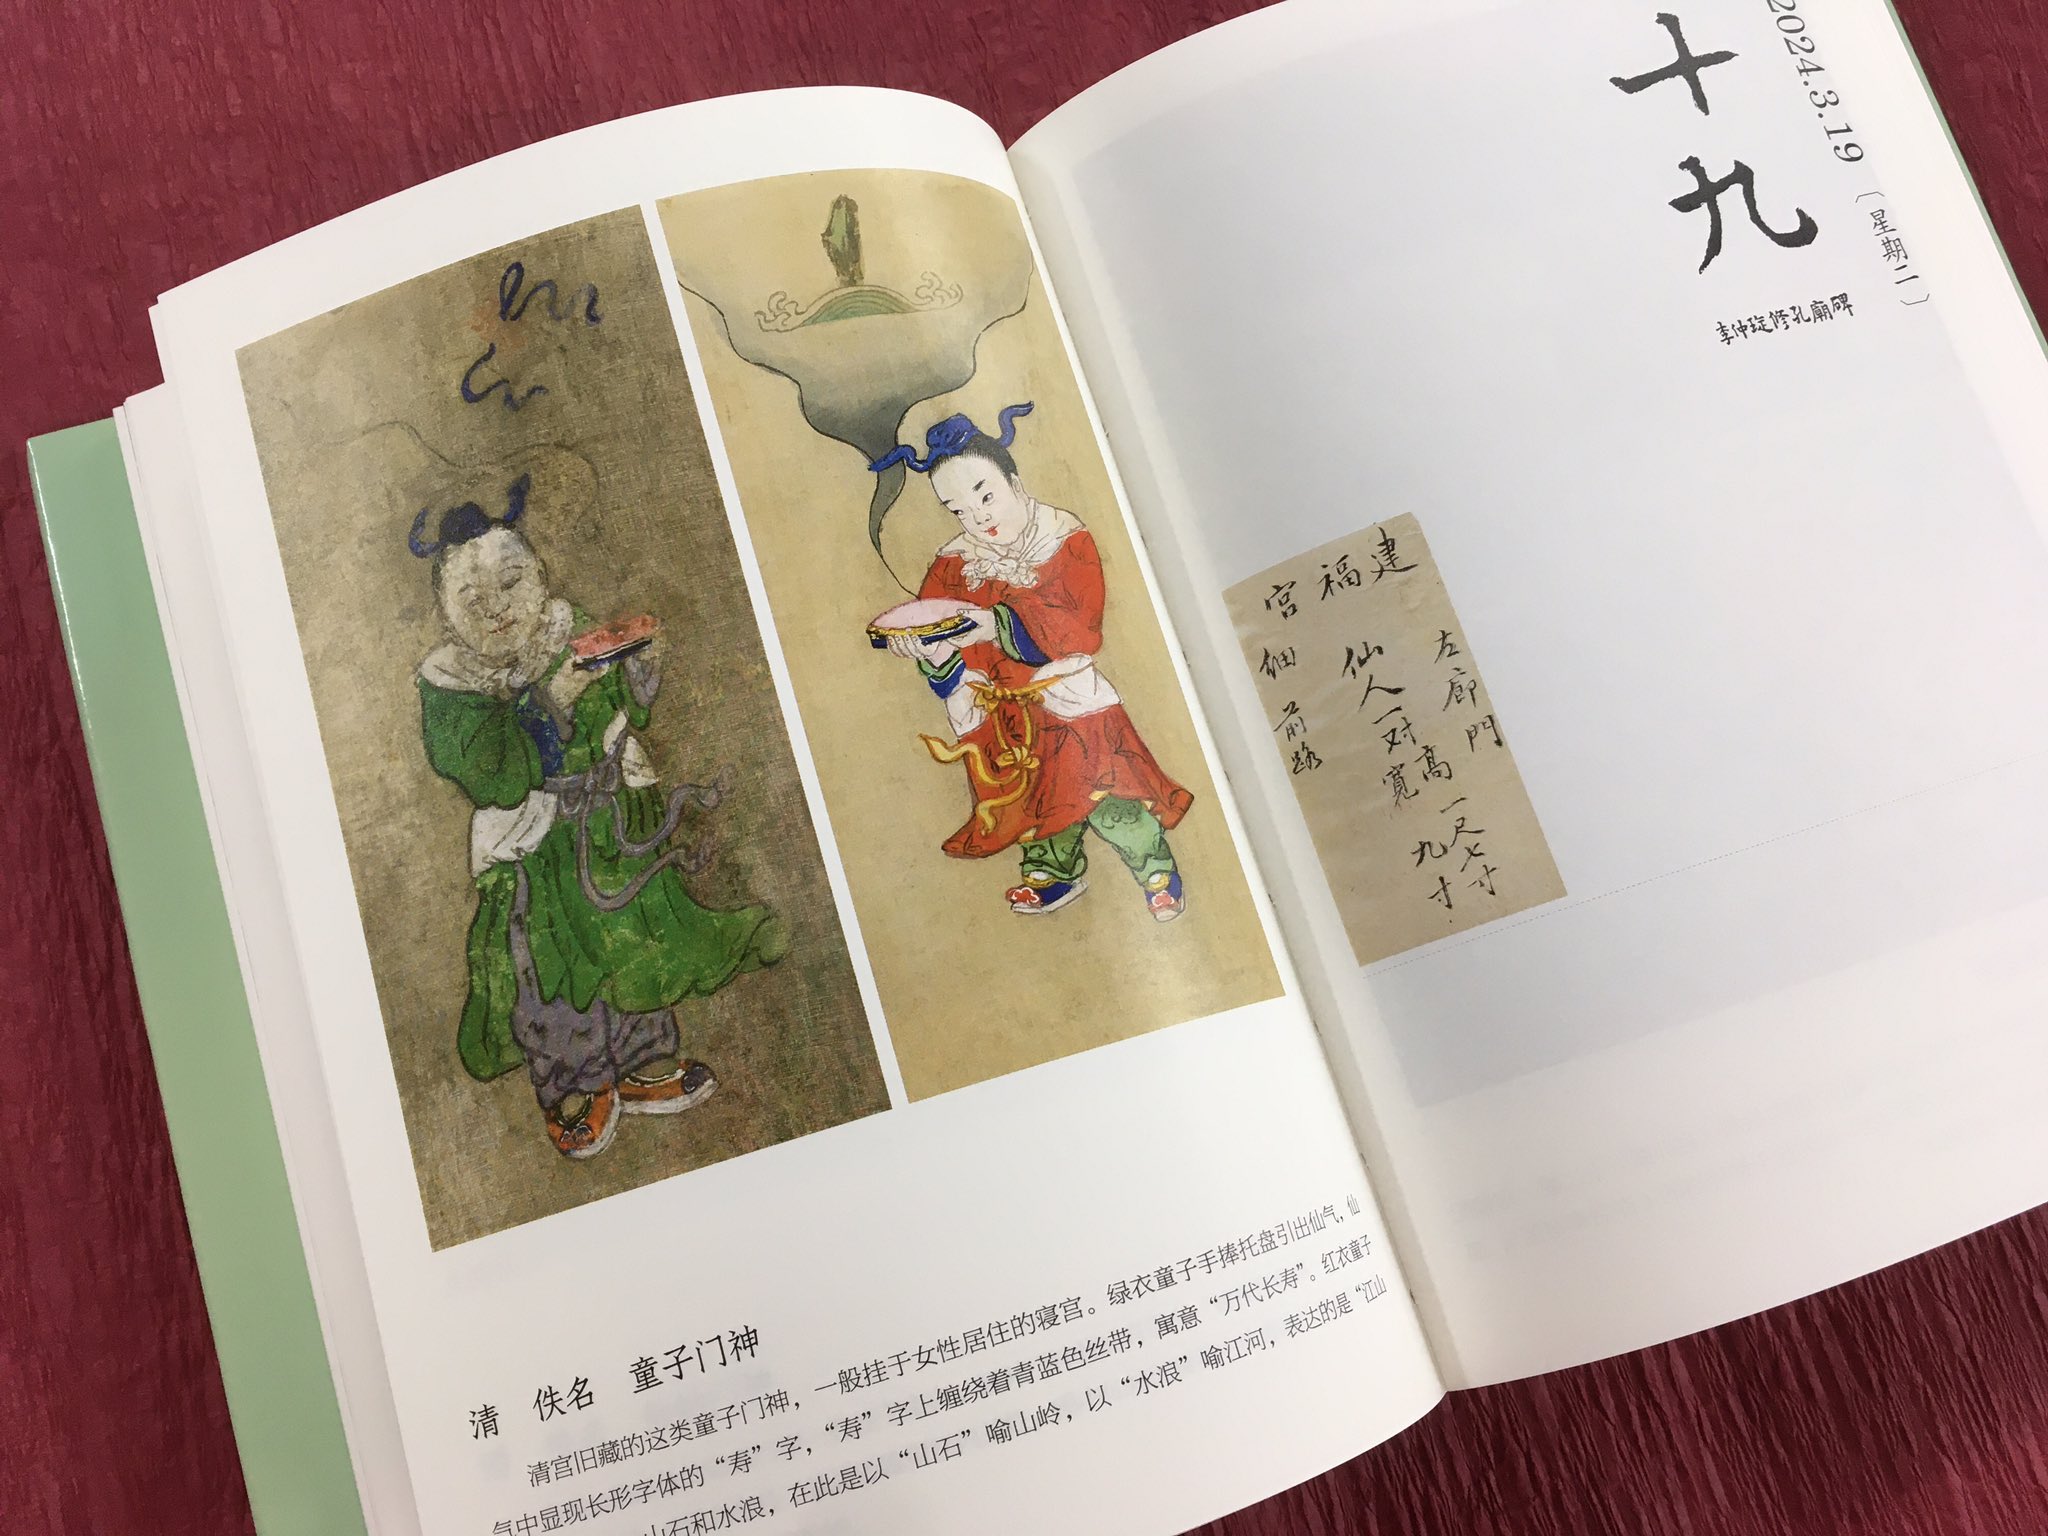 清 佚名 童子门神
清宫旧藏的这类童子门神，一般挂于女性居住的寝宫。绿衣童子手捧托盘引出仙气，仙
气中显现长形字体的“寿”字，“寿”字上缠绕着青蓝色丝带，寓意“万代长寿”。红衣童子
山石和水浪，在此是以“山石”喻山岭，以“水浪”喻江河，表达的是“江山
2024.3.19
〔星期二〕
十九
李仲璇修孔廟碑
建福宮
左廊門
仙人一对
高一尺七寸
寬九寸
細
前路